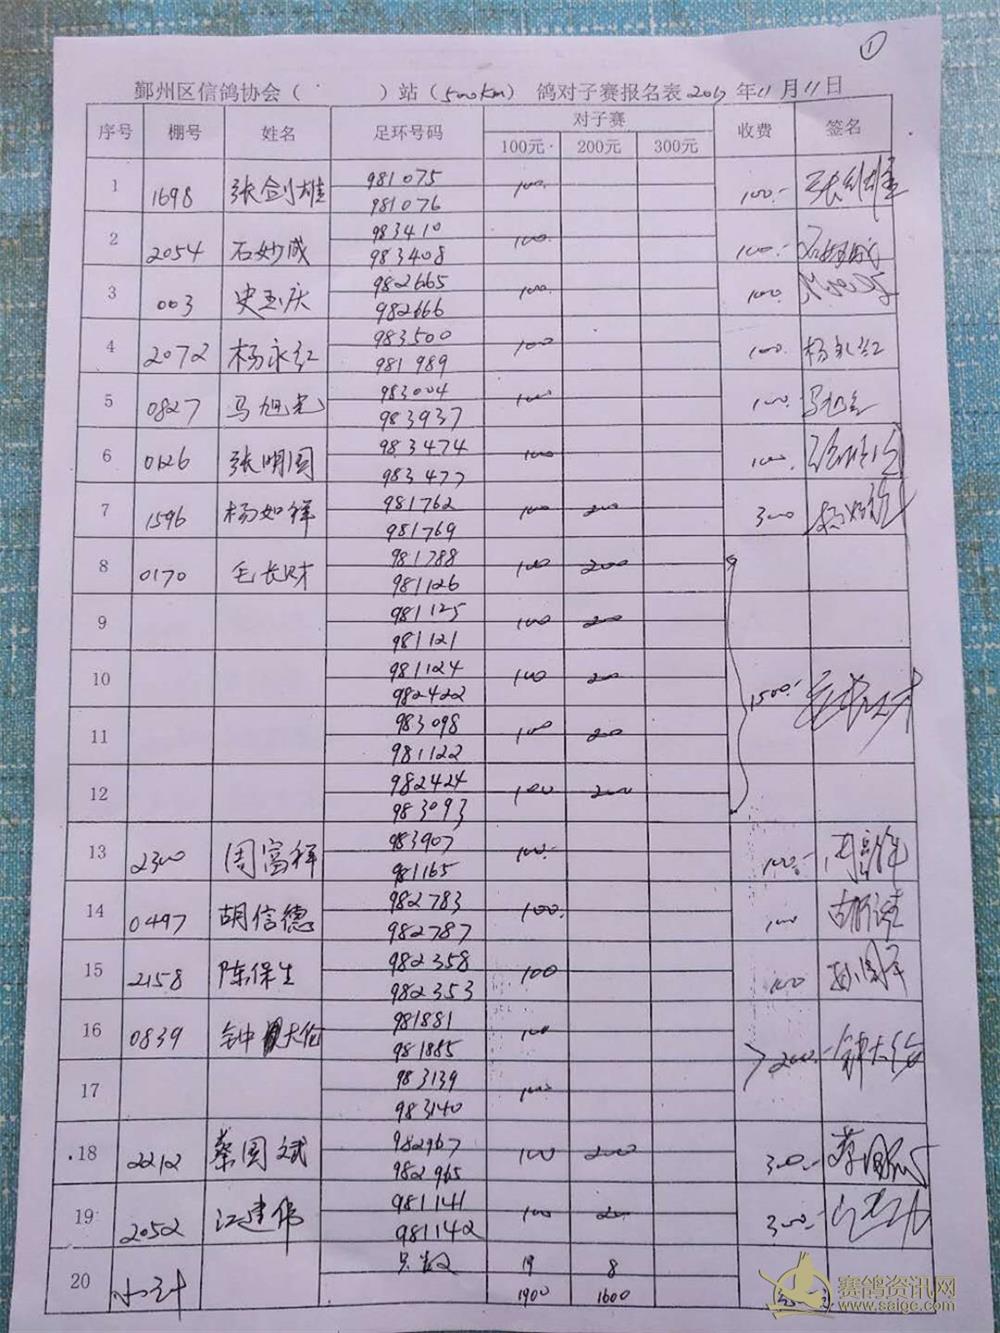 ①
鄞州区信鸽协会（ ）站（500km） 鸽对子赛报名表2017年11月11日
序号 棚号 姓名 足环号码 对子赛 收费 签名
100元 200元 300元
1 1698 张剑雄 981075 100. 100.- 张剑雄
981076
2 2054 石妙成 983410 100. 100.-
983408
3 003 史玉庆 982665 100. 100.
982666
4 2072 杨永红 983500 100 100. 杨永红
981989
5 0827 马旭光 983004 100 100. 马旭光
983937
6 0126 张明国 983474 100 100.
983477
7 1596 杨如祥 981762 100 200 300 杨如祥
981769
8 0170 毛长财 981788 100 200
981126
9 981125 100 200
981121
10 981124 100 200 1500.- 毛长财
982422
11 983098 100 200
981122
12 982424 100 200
983093
13 2300 周富祥 983907 100.- 100.-
981165
14 0497 胡信德 982783 100. 100 胡信德
982787
15 2158 陈保生 982358 100 100
982353
16 0839 钟大伦 981881 100 200.- 钟大伦
981885
17 983139 100
983140
18 2212 蔡国斌 982967 100 200 300.- 蔡国斌
982965
19 2052 江建伟 981141 100 200 300.-
981142
20 小计 只数 19 8
1900 1600
赛鸽资讯网
www.saige.com